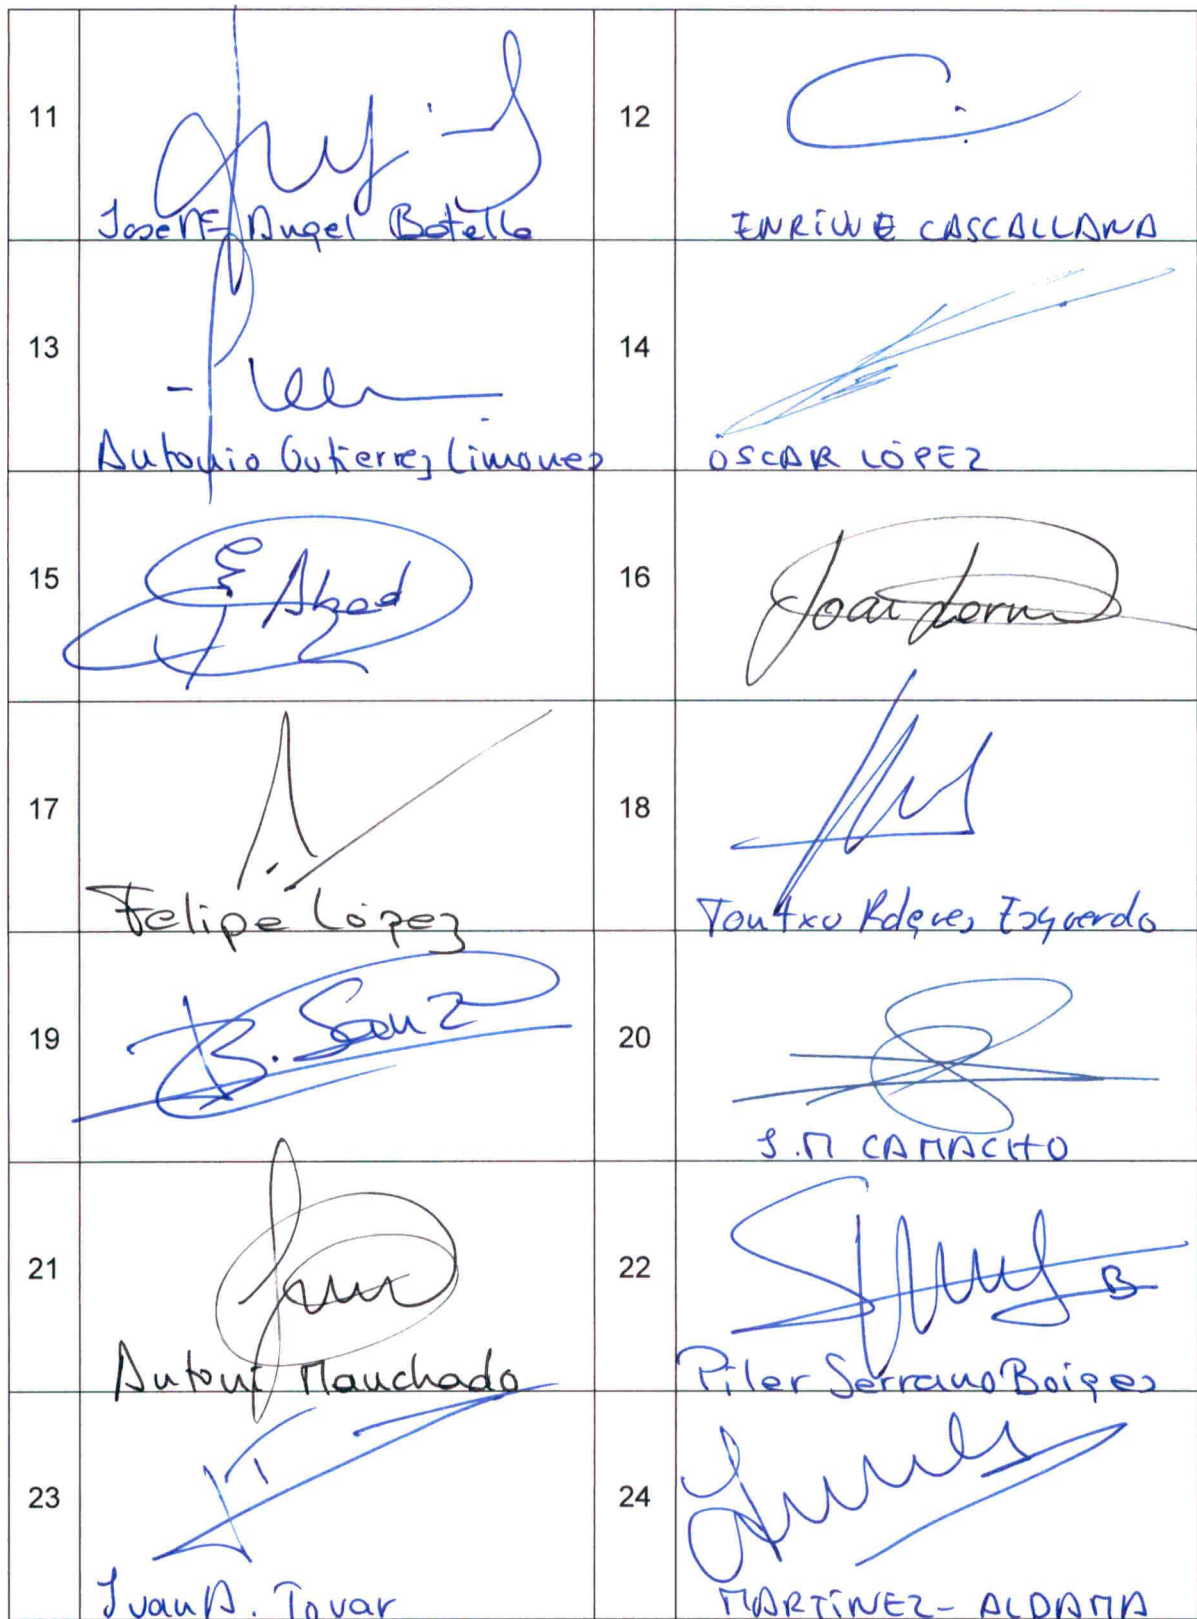 11
Jose Mª Angel Batalla
12
ENRIWE CASCALLANA
13
Antonio Gutierrez Limones
14
ÓSCAR LÓPEZ
15
16
Joan
17
Felipe López
18
19
B. Sanz
20
J.M CAMACHO
21
Antoni Manchado
22
B
Pilar Serrano Boiges
23
Juan A. Tovar
24
MARTÍNEZ- ALDAMA